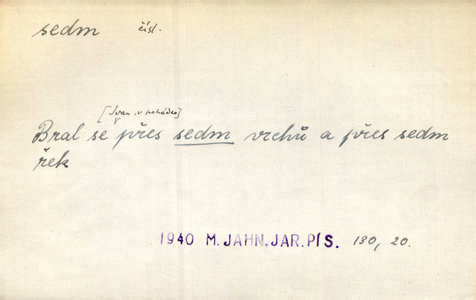 sedm čísl.
[Ivan, v pohádce]
Bral se přes sedm vrchů a přes sedm
řek
1940 M. JAHN, JAR. PÍS. 130, 20.